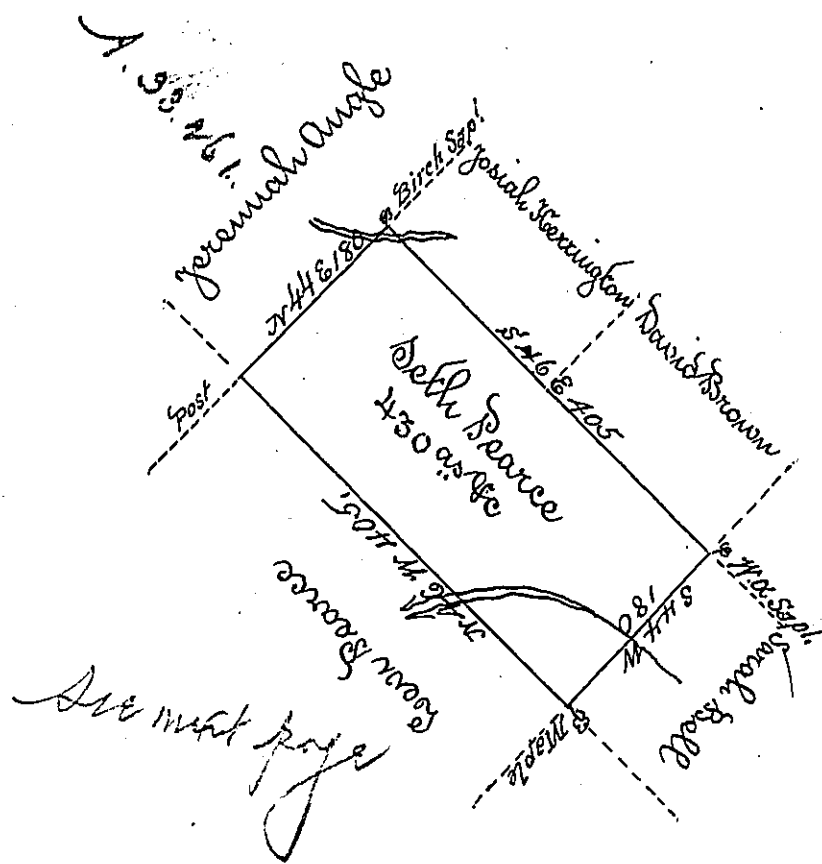 A. 33. 261.
Jeremiah Angle
Birch Sap!
Josiah Herrington
David Brown
N 44 E 180
post
S 46 E 405
Seth Pearce
430 as &c
N 46 W 405
S 44 W
180
W.O. Sap!
Sarah Bell
Maple
Pearce
See next page